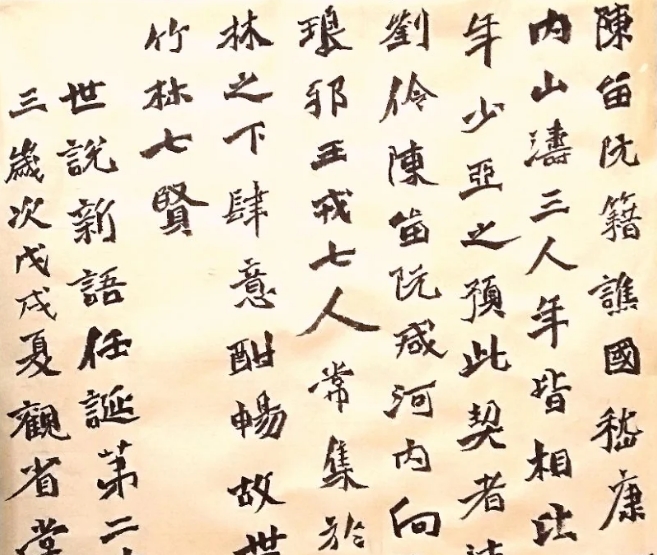 陳留阮籍譙國嵇康
内山濤三人年皆相比
年少亞之預此契者
劉伶陳留阮咸河内向
琅邪王戎七人常集於
林之下肆意酣暢故世
竹林七賢
世說新語任誕第二
三歲次戊戌夏觀省堂